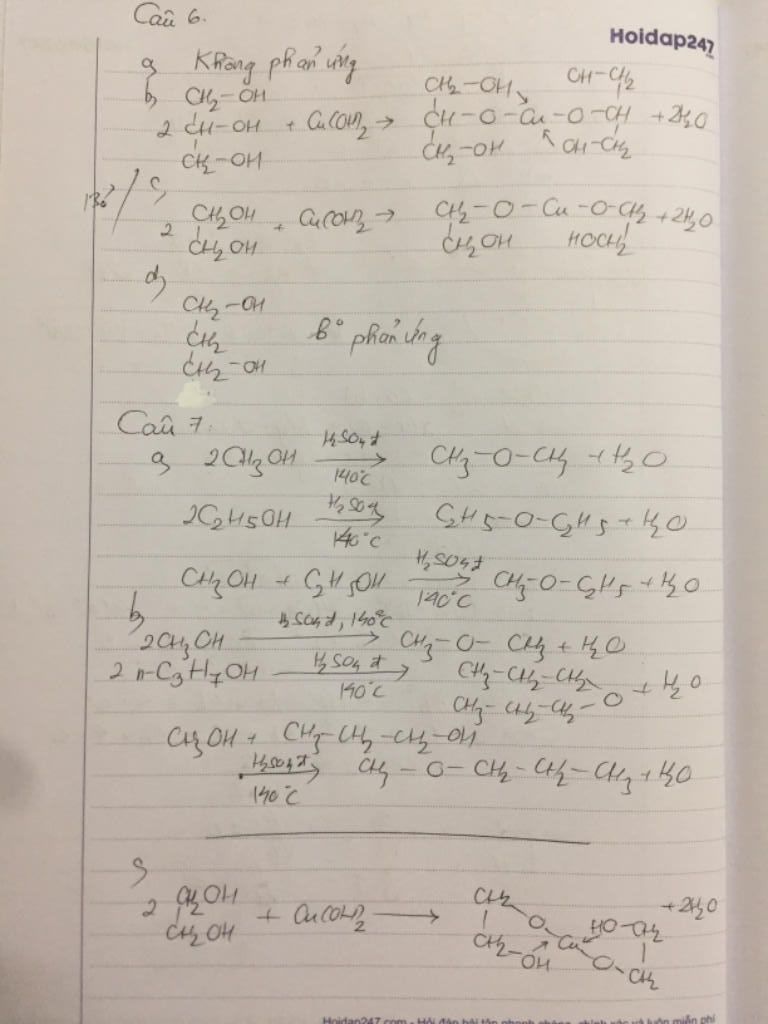 Câu 6.
Hoidap247
a) Không phản ứng
b) CH2-OH CH2-OH CH-CH2
2 CH-OH + Cu(OH)2 → CH-O-Cu-O-CH +2H2O
CH2-OH CH2-OH OH-CH2
c)
2 CH2OH + Cu(OH)2 → CH2-O-Cu-O-CH2 +2H2O
CH2OH CH2OH HOCH2
d)
CH2-OH
CH2 ko phản ứng
CH2-OH
Câu 7.
a) 2CH3OH H2SO4đ 140°C → CH3-O-CH3 + H2O
2C2H5OH H2SO4đ 140°C → C2H5-O-C2H5 + H2O
CH3OH + C2H5OH H2SO4đ 140°C → CH3-O-C2H5 + H2O
b)
2CH3OH H2SO4đ, 140°C → CH3-O-CH3 + H2O
2 n-C3H7OH H2SO4đ 140°C → CH3-CH2-CH2
CH3-CH2-CH2-O + H2O
CH3OH + CH3-CH2-CH2-OH
H2SO4đ 140°C → CH3-O-CH2-CH2-CH3 + H2O
c)
2 CH2OH + Cu(OH)2 → CH2 O Cu HO-CH2 +2H2O
CH2OH CH2-OH O-CH2
Hoidap247.com - Hỏi đáp bài tập nhanh chóng, chính xác và luôn miễn phí